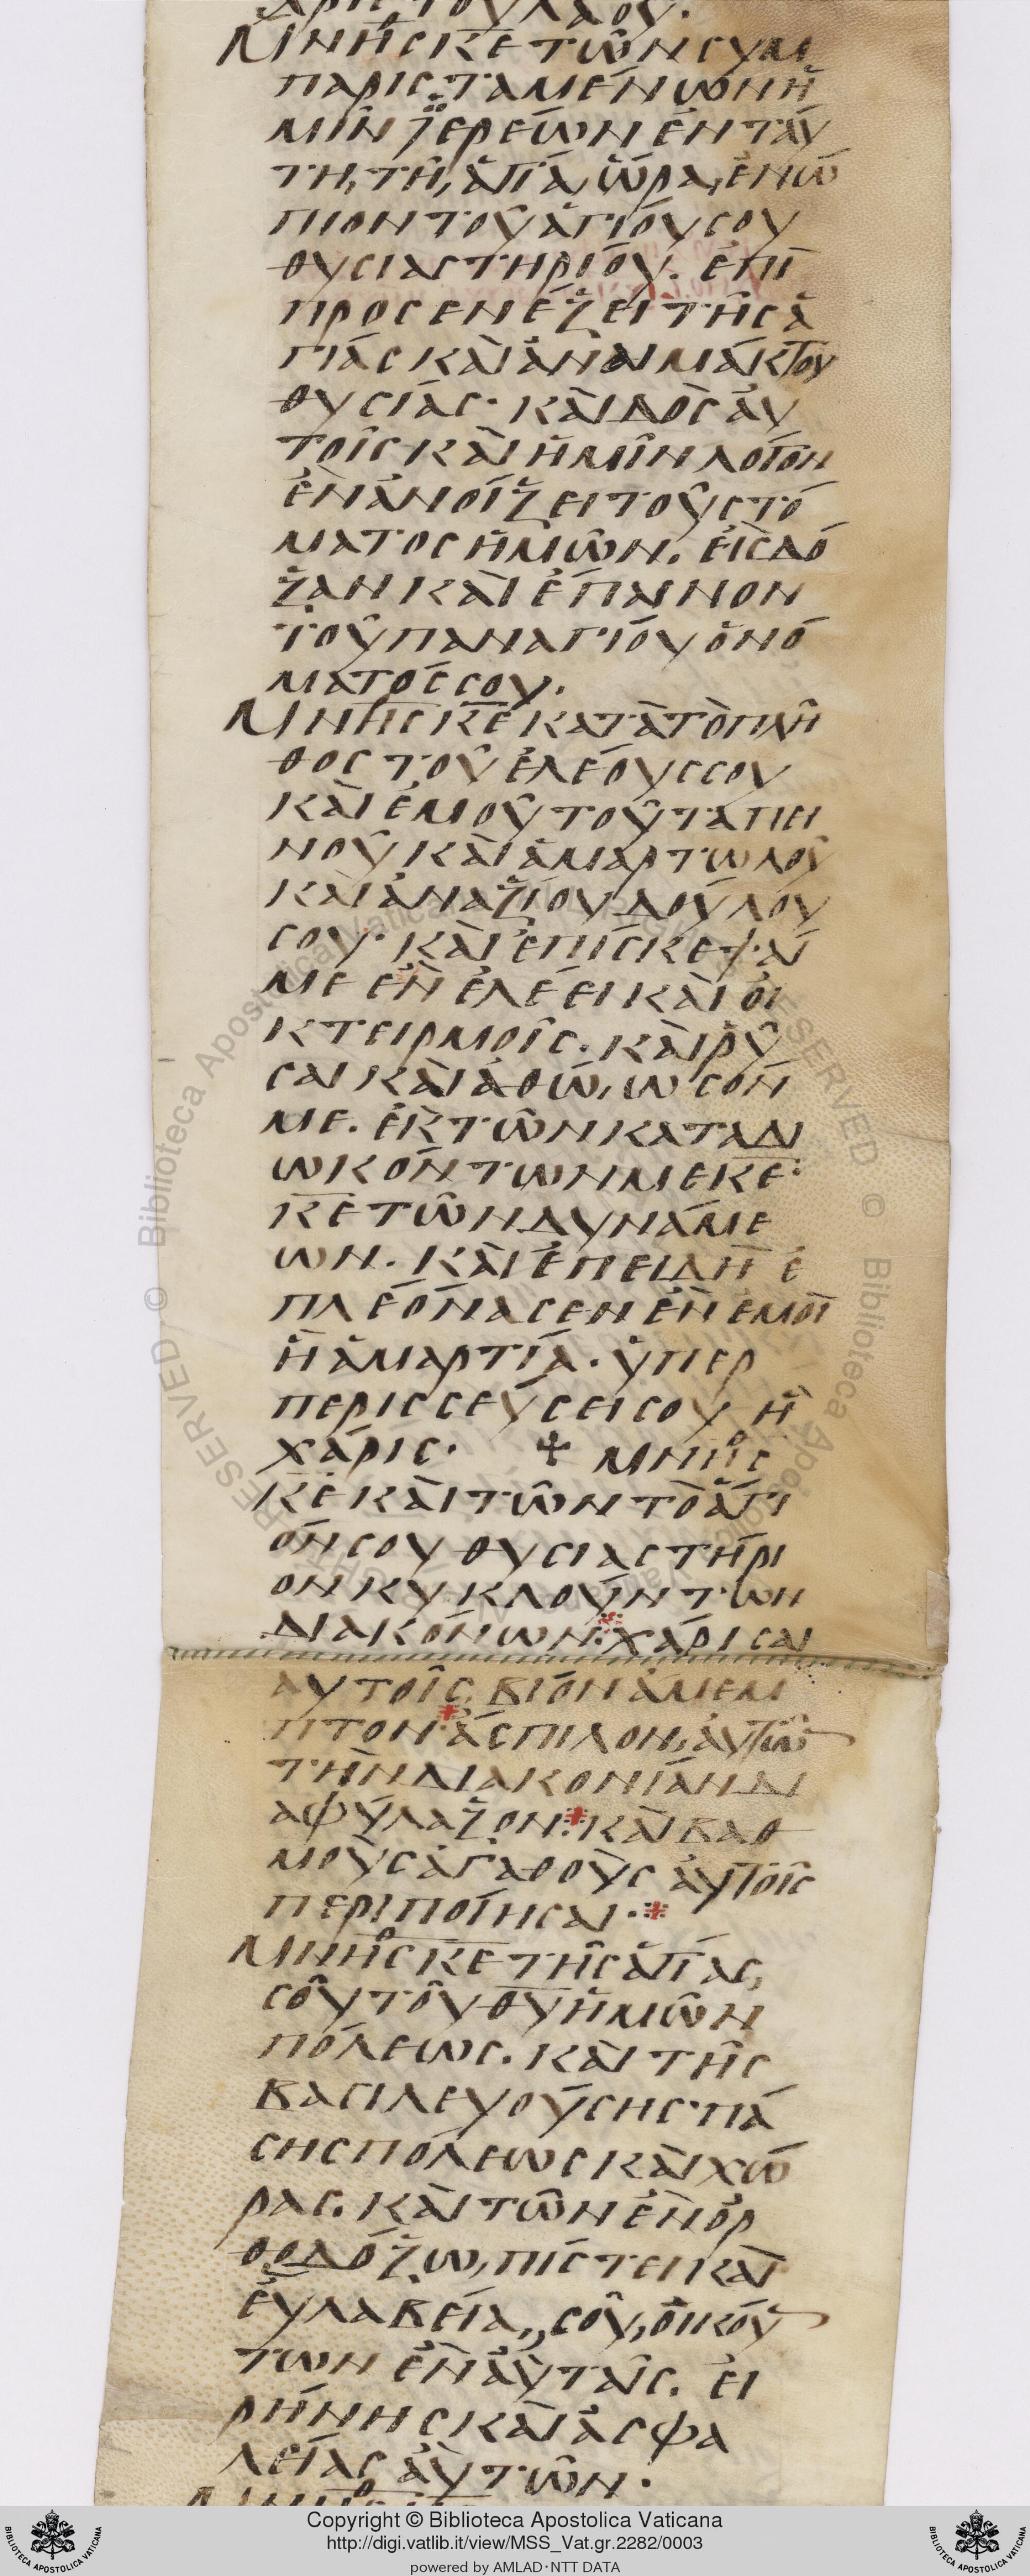 χάριν τοῦ λαοῦ.
Μνήσ κε τῶν συμ
παρισταμένων ἡ
μῖν ἱερέων ἐν ταύ
τη, τῆ, ἁγία, ὥρα, ἐνώ
πιον τοῦ ἁγίου σου
θυσιαστηρίου. ἐπὶ
προσενέξει τῆς ἁ
γίας καὶ ἀναιμάκτου
θυσίας· καὶ δὸς αὐ
τοῖς καὶ ἡμῖν λόγον
ἐν ἀνοίξει τοῦ στό
ματος ἡμῶν. εἰς δό
ξαν καὶ ἔπαινον
τοῦ παναγίου ὀνό
ματός σου.
Μνήσ κε κατὰ τὸ πλῆ
θος τοῦ ἐλέους σου
καὶ ἐμοῦ τοῦ ταπει
νοῦ καὶ ἁμαρτωλοῦ
καὶ ἀναξίου δούλου
σου· καὶ ἐπίσκεψαί
με ἐν ἐλέει καὶ οἰ
κτειρμοῖς. καὶ ῥῦ
σαι καὶ ἀθώ,ωσόν
με. ἐκ τῶν καταδι
ωκόντων με κε·
κε τῶν δυνάμε
ων. καὶ ἐπειδὴ ἐ
πλεόνασεν ἐν ἐμοὶ
ἡ ἁμαρτία. ὑπερ
περισσεύσει σου ἡ
χάρις. ✢ μνήσ
κε καὶ τῶν τὸ ἅγι
όν σου θυσιαστήρι
ον κυκλούντων
διακόνων· χάρισαι
αὐτοῖς βίον ἄμεμ
πτον· ἄσπιλον, αὐτῶν
τὴν διακονίαν δι
αφύλαξον· καὶ βαθ
μοὺς ἀγαθοὺς αὐτοῖς
περιποίησαι·
Μνήσ κε τῆς ἁγίας,
σοῦ τοῦ θυ ἡμῶν
πόλεως. καὶ τῆς
βασιλευούσης· πά
σης πόλεως καὶ χώ
ρας. καὶ τῶν ἐν ὀρ
θοδόξω, πίστει καὶ
εὐλαβεία,, σοῦ, οἰκού
των ἐν αὐταῖς. εἰ
ρήνης καὶ ἀσφα
λείας αὐτῶν.
Copyright © Biblioteca Apostolica Vaticana
http://digi.vatlib.it/view/MSS_Vat.gr.2282/0003
powered by AMLAD·NTT DATA